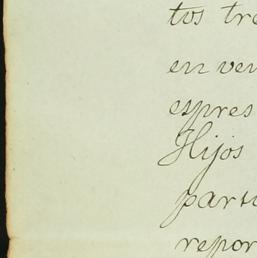 tos tre
en ven
espres
Hijos
parti
repor